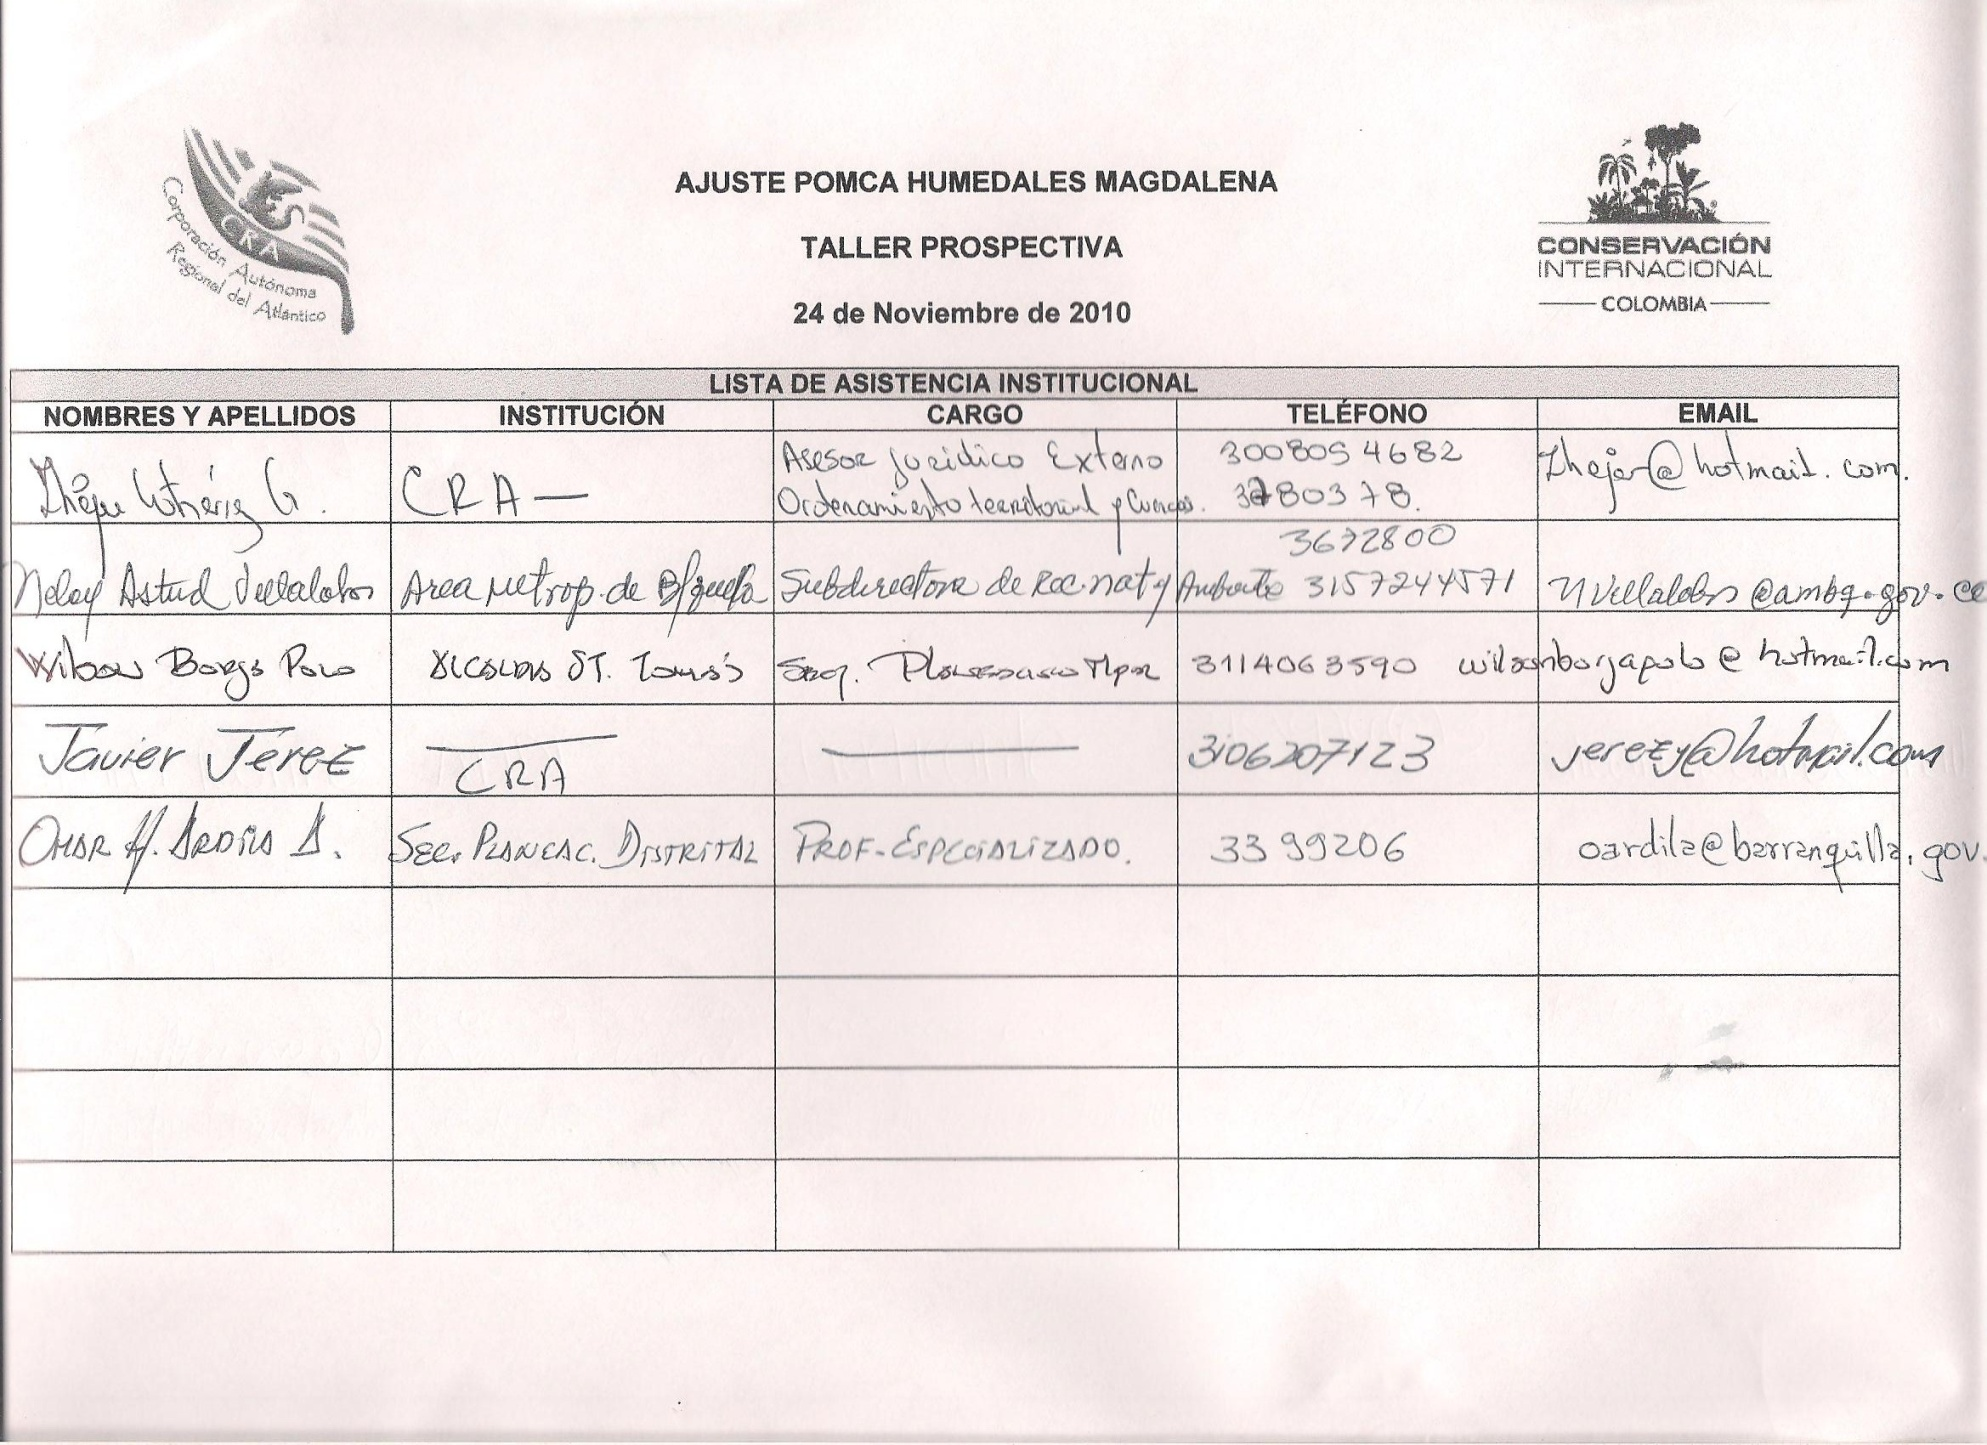 CRA
Corporación Autónoma
Regional del Atlántico
AJUSTE POMCA HUMEDALES MAGDALENA
TALLER PROSPECTIVA
24 de Noviembre de 2010
CONSERVACIÓN
INTERNACIONAL
COLOMBIA
LISTA DE ASISTENCIA INSTITUCIONAL
NOMBRES Y APELLIDOS INSTITUCIÓN CARGO TELÉFONO EMAIL
G. CRA Asesor Jurídico Externo 3008054682 @hotmail.com.
Ordenamiento territorial y Cuencas. 3780378.
3672800
Astrid Villalobos Area Metrop. de B/quilla Subdirectora de Rec. nat y Ambiente 3157244571 nvillalobos@ambq.gov.co
Wilson Borja Polo St. Tomás 3114063590 wilsonborjapolo@hotmail.com
Javier Jerez CRA 3106207123 jerezj@hotmail.com
Omar A. Ardila A. Sec. Planeac. Distrital Prof. Especializado. 3399206 oardila@barranquilla.gov.